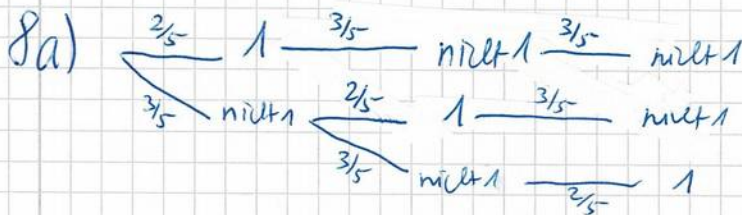 8a) 2/5 1 3/5 nicht 1 3/5 nicht 1
3/5 nicht 1 2/5 1 3/5 nicht 1
3/5 nicht 1 2/5 1